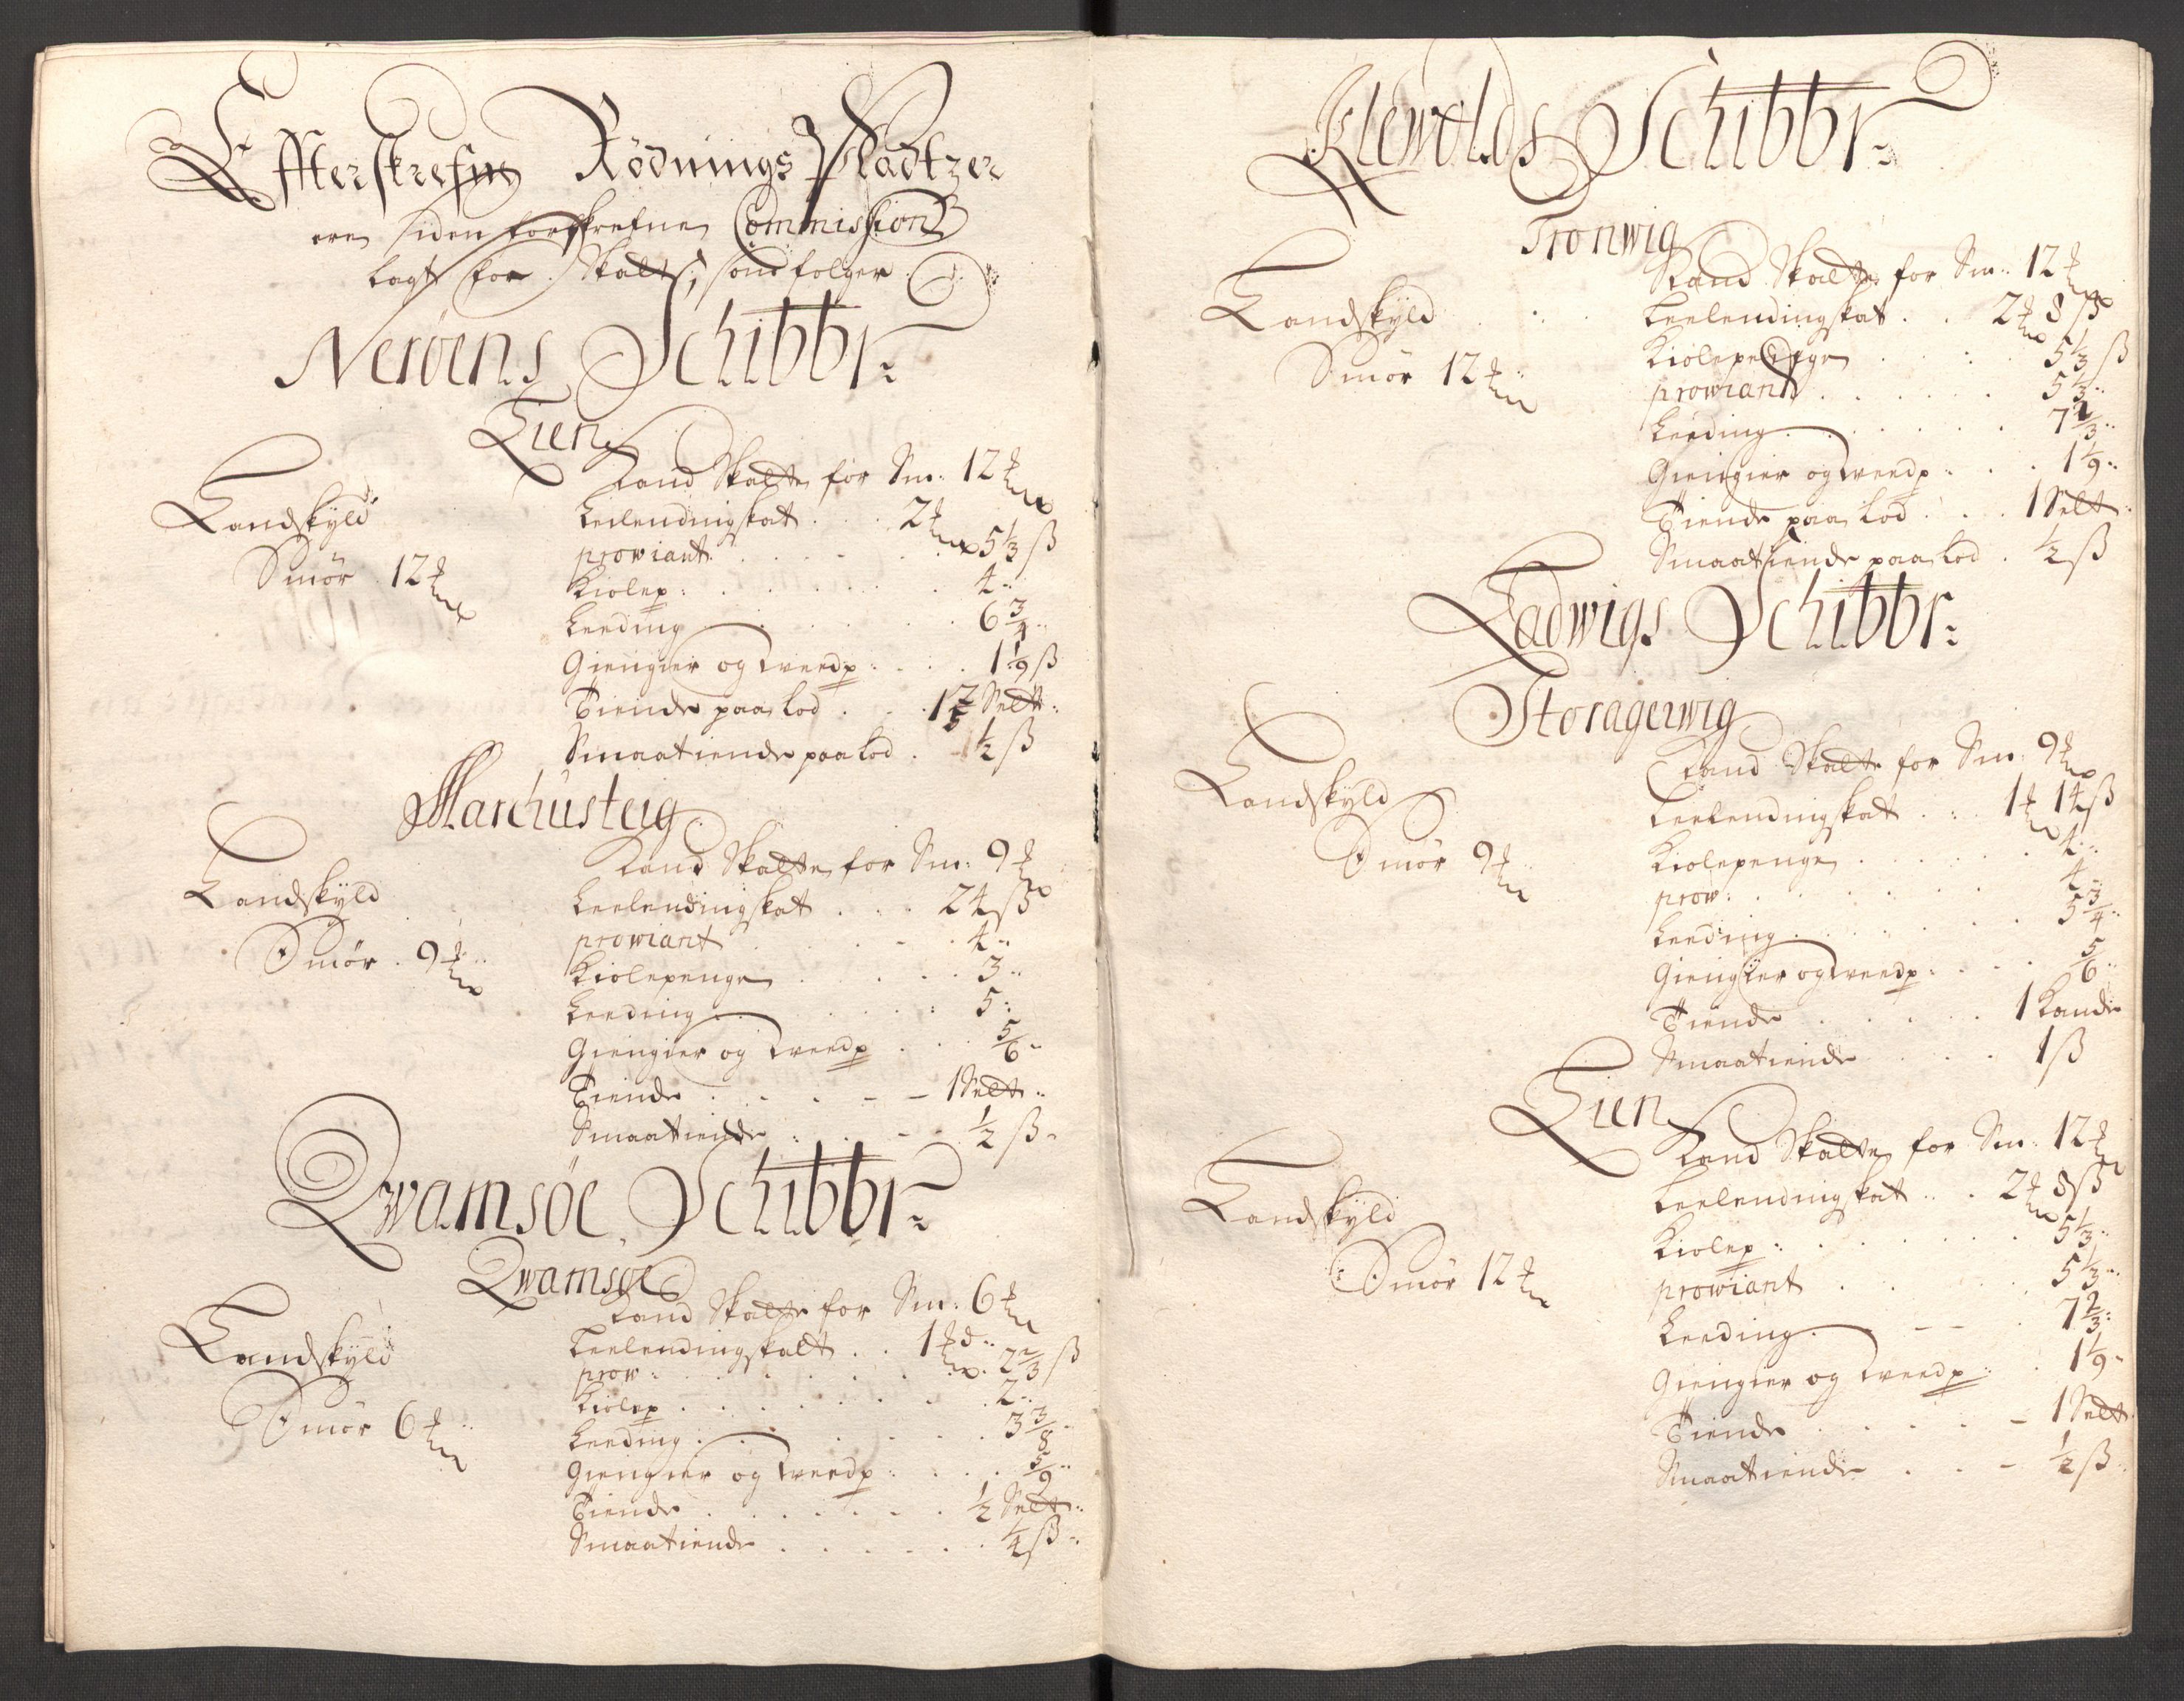 Effterskrefne Rödnings Pladtzer
ere siden forskrefne Commission
lagt for Skatt, som folger
Nerøens Schibbr:
Lien
Landskyld
Smör 12 ₰
Land Skatte for Sm: 12 ₰
Leilendingskat . . . 2 ₰
proviant . . . 5⅓ ß
Kiolep: . . . 4 ..
Leeding . . . 6¾ ..
Giengier og Creedp: . . . 1 1/9 ß
Tiende paa Lod . . . Selt:
Smaatiende paa Lod . ½ ß
Marchusteig
Landskyld
Smör . 9 ₰
Land Skatte for Sm: 9 ₰
Leelendingskat . . . 24 ß
prowiant . . . 4 ..
Kiolepenge . . . 3 ..
Leeding . . . 5:
Giengier og Creedp . . . 5/6 ..
Tiende . . . 1 Selt ..
Smaatiende . . . ½ ß
Qwamsöe Schibbr:
Qwamsøe
Landskyld
Smör 6 ₰
Land Skatte for Sm: 6 ₰
Leelendingskatt . . 1 ₰ ..
prow: . . . 2⅔ ß
Kiolep . . . 2 ..
Leeding . . . 3⅜ ..
Giengier og Creedp: . . . 5/9 ..
Tiende . . . ½ Selt ..
Smaatiende . . . ¼ ß
Klewolds Schibbr:
Tronwig
Landskyld
Smör 12 ₰
Land Skatte for Sm: 12 ₰
Leelendingskat . . 2 ₰ 8 ß
Kiolepenge . . . 5⅓ ß
prowiant . . . 5⅓ ..
Leeding . . . 7⅔ ..
Giengier og Creedp . . . 1 1/9 ..
Tiende paa Lod . . . 1 Selt:
Smaatiende paa Lod . ½ ß
Ladwigs Schibbr:
Storagerwig
Landskyld
Smör 9 ₰
Land Skatte for Sm: 9 ₰
Leelendingskat . . . 1 ₰ 14 ß
Kiolepenge . . . 4 ..
prow: . . . 4 ..
Leeding . . . 5¾ ..
Giengier og Creedp: . . . 5/6 ..
Tiende . . . 1 Kande
Smaatiende . . . 1 ß
Lien
Landskyld
Smör 12 ₰
Land Skatte for Sm: 12 ₰
Leelendingskat . . . 2 ₰ 8 ß
Kiolep: . . . 5⅓ ..
prowiant . . . 5⅓ ..
Leeding . . . 7⅔ ..
Giengier og Creedp: . . 1 1/9 ..
Tiende . . . 1 Selt
Smaatiende . . . ½ ß